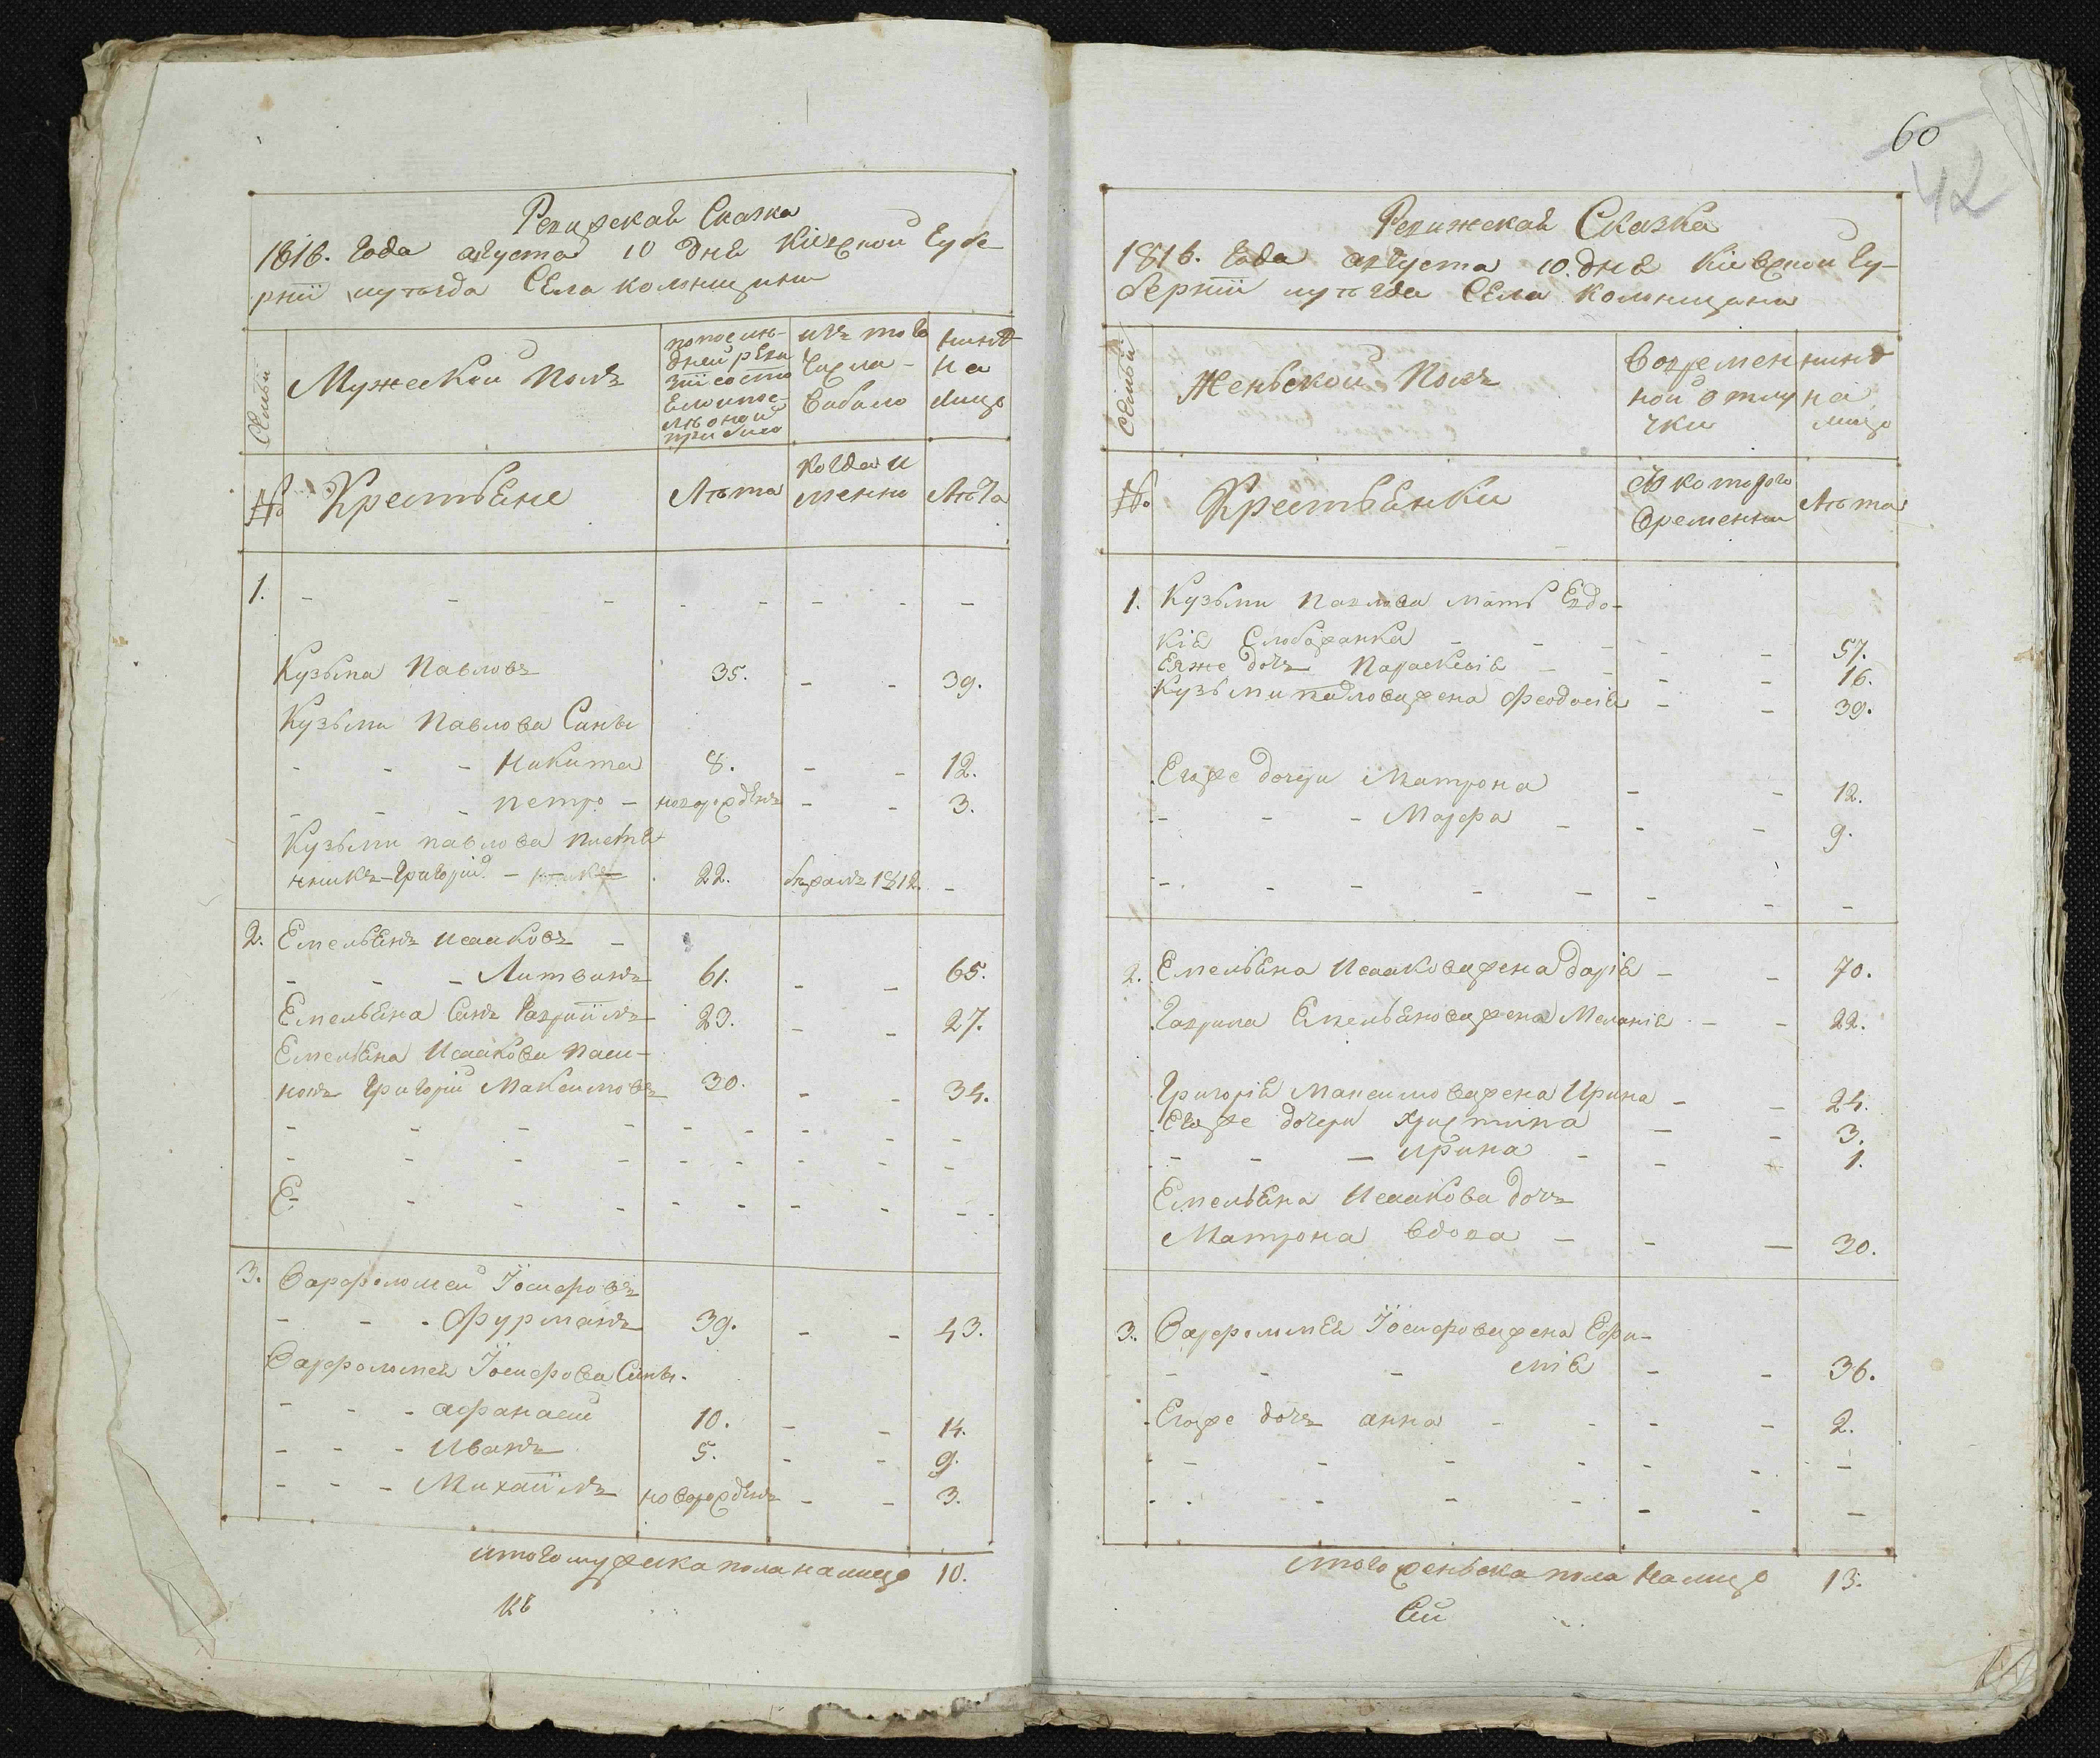 Ревижскаѧ Сказка
1816. Года августа 10 днѧ Кіевской Губе
рніи уѣзда Села Колонщини
Семьи
Мужескои Полъ
попослѣ-
дней реви
зіи состо
ѧло и пос-
лѣ оной
прибило
изъ того
Числа -
вибило
нинѣ
на
лицо
№
Крестьѧне
Лѣта
Когда и
менно
Лѣта
1.
Кузьма Павловъ 35. 39.
Кузьми Павлова Сины
Никита 8. 12.
Петро - новорожденъ 3.
Кузьми Павлова племѧ
нникъ Григорій 22. 1812.
2. Емельѧнъ Исааковъ
Литвинъ 61. 65.
Емельѧна Синъ Гавріилъ 23. 27.
Емельѧна Исаакова Паси-
нокъ Григорій Максимовъ 30. 34.
Е
3. Варфоломей Іосифовъ
Фурманъ 39. 43.
Варфоломеѧ Іосифова Сины.
Афанасій 10. 14.
Иванъ 5. 9.
Михаилъ новорожденъ 3.
итого мужеска пола налицо 10.
60
42
Ревижскаѧ Сказка
1816. Года августа 10. днѧ Кіевской Гу-
берніи уѣзда Села Колонщини
Семьи
Женьской Полъ
Вовремен
ной отлу
чки
нинѣ
на
лицо
№
Крестьѧнки
Съ которого
Времени
Лѣта
1. Кузьми Павлова мать Евдо-
кіѧ 57.
Еѧже дочъ Параскевіѧ 16.
Кузьми Павлова жена Феодосіѧ 39.
Егоже дочери Матрона 12.
Марфа 9.
2. Емельѧна Исаакова жена Даріѧ 70.
Гаврила Емельѧнова жена Меланіѧ 22.
Григоріѧ Максимова жена Ирина 24.
Егоже дочери Христина 3.
Ирина 1.
Емельѧна Исаакова дочъ
Матрона вдова 30.
3. Варфоломеѧ Іосифова жена Ефи-
міѧ 36.
Егоже дочъ Анна 2.
итого женьска пола налицо 13.